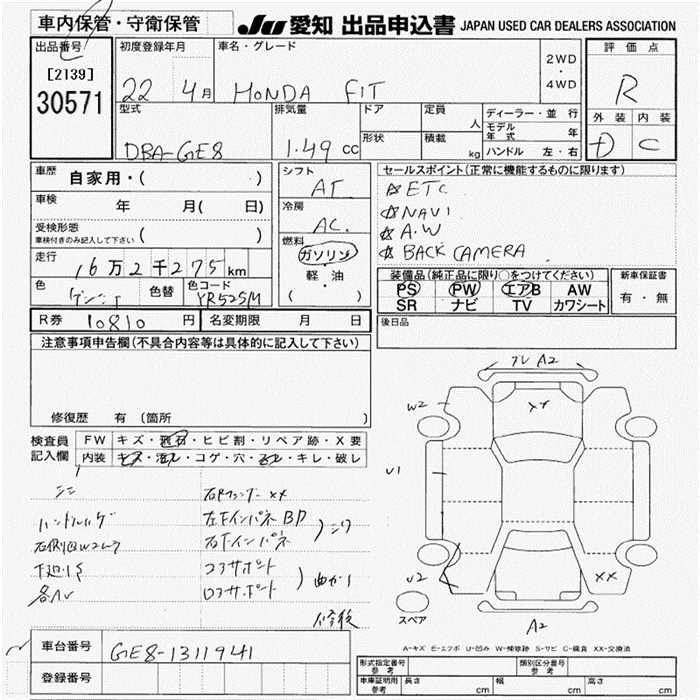 車内保管・守衛保管
JU 愛知 出品申込書 JAPAN USED CAR DEALERS ASSOCIATION
出品番号
[2139]
30571
初度登録年月
22 4月
車名・グレード
HONDA FIT
2WD
・
4WD
評価点
R
外装 内装
D C
型式
DBA-GE8
排気量
1.49 cc
ドア
形状
定員
人
積載
kg
ディーラー・並行
モデル年式 年
ハンドル 左・右
車歴
自家用・( )
車検
年 月( 日)
受検形態
車検付きのみ記入して下さい ( )
走行
16万2千275km
色
色替
色コード
YR525M
シフト
AT
冷房
AC
燃料
ガソリン
・
軽・油
( )
セールスポイント(正常に機能するものに限ります)
☆ETC
☆NAVI
☆A.W
☆BACK CAMERA
装備品(純正品に限り○をつけてください)
PS PW エアB AW
SR ナビ TV カワシート
新車保証書
有・無
後日品
R券 10810 円
名変期限 月 日
注意事項申告欄(不具合内容等は具体的に記入して下さい)
修復歴 有(箇所 )
検査員
記入欄
FW キズ・飛石・ヒビ割・リペア跡・X要
内装 キズ・汚レ・コゲ・穴・スレ・キレ・破レ
ハンドルハゲ
下廻りサビ
右Rフェンダー XX
左下インパネ BP
右下インパネ
コアサポート
ロアサポート
曲がり
修復
フレ A2
W2
XX
U1
U2
XX
A2
スペア
A-キズ E-エクボ U-凹み W-補修跡 S-サビ C-腐食 XX-交換済
車台番号
GE8-1311941
登録番号
形式指定番号
参考
類別区分番号
参考
車庫証明用
参考
長さ cm 幅 cm 高さ cm